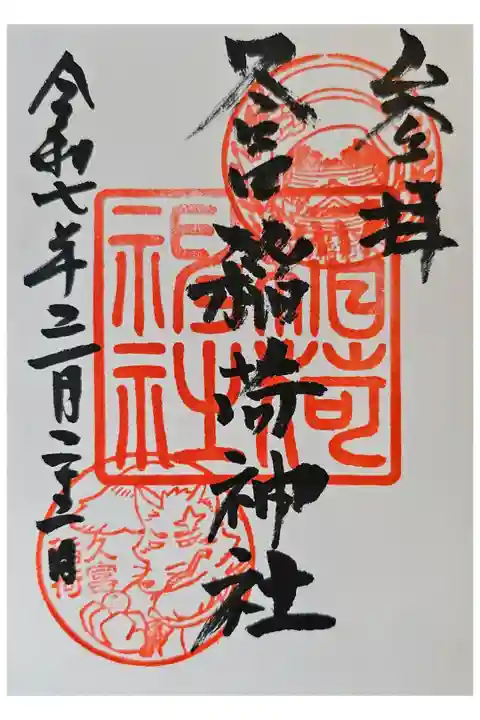 参拝
久富稲荷神社
令和七年三月二十二日
稲荷
神社
久富
稲荷